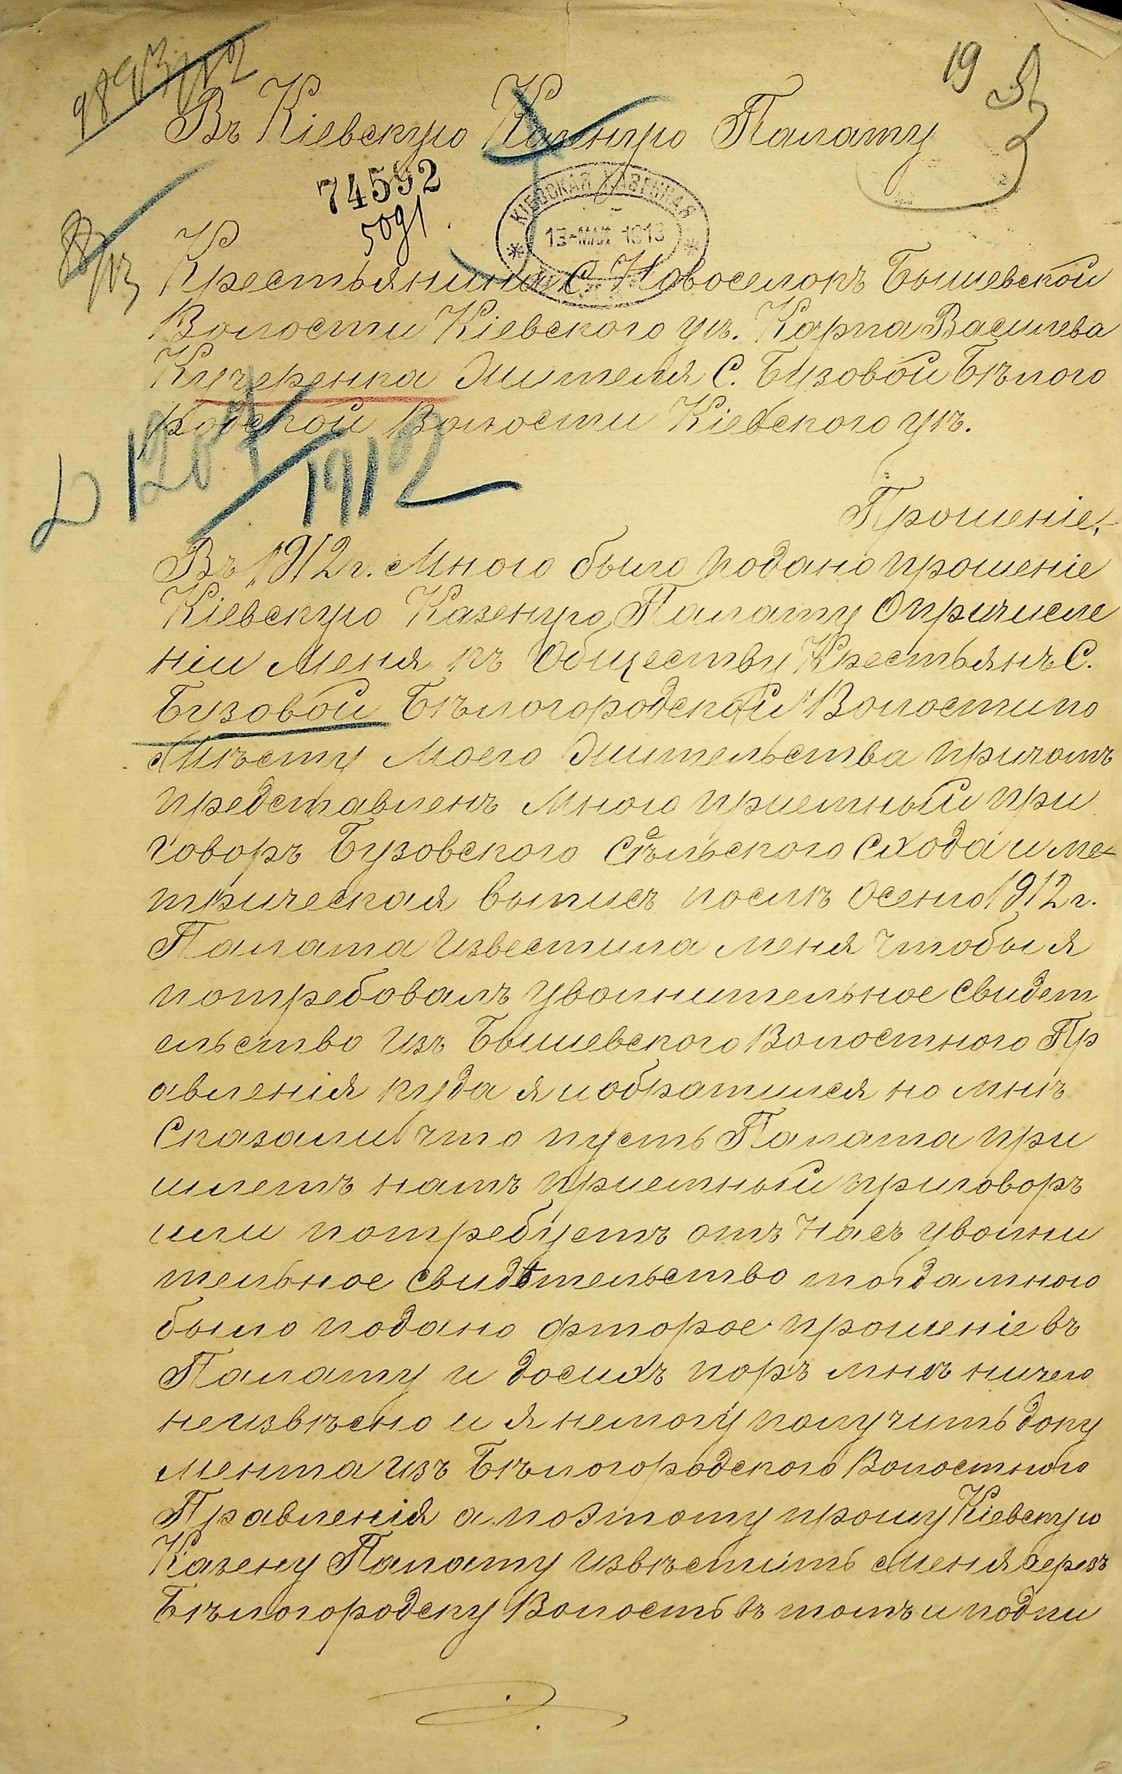 Въ Кіевскую Казеную Палату
19
74592
5091
КІЕВСКАЯ КАЗЕННАЯ
13-МАЯ 1913
Крестьянина С. Новоселокъ Бышевской
Волости Кіевского ує. Карпа Васильева
Кучеренка Жителя С. Бузовой Бѣлого
родской Волости Кіевского уѣ.
1912
Прошеніе,
Въ 1912 г. Мною было подано прошеніе
Кіевскую Казеную Палату О причисле
ніи Меня къ Обществу Крестьянъ С.
Бузовой Бѣлогородской Волости по
Мѣсту Моего Жительства причомъ
представленъ Мною приемный при
говоръ Бузовского Сѣльского Схода и ме-
трическая выпись послѣ Осеню 1912 г.
Палата Известила Меня Чтобы я
потребовалъ увольнительное Свидет
ельство Изъ Бышевского Волостного Пр
авленія куда я и обратился но мнѣ
Сказали что пусть Палата при
шлетъ намъ приемный приговоръ
или потребуетъ отъ насъ увольни
тельное свидѣтельство тогда мною
было подано фторое прошеніе въ
Палату и досихъ поръ мнѣ ничего
неизвѣсно и я немогу получить доку
мента Изъ Бѣлогородского Волостного
Правленія а поэтому прошу Кіевскую
Казену Палату извѣстить Меня через
Бѣлогородску Волость въ томъ и подпи